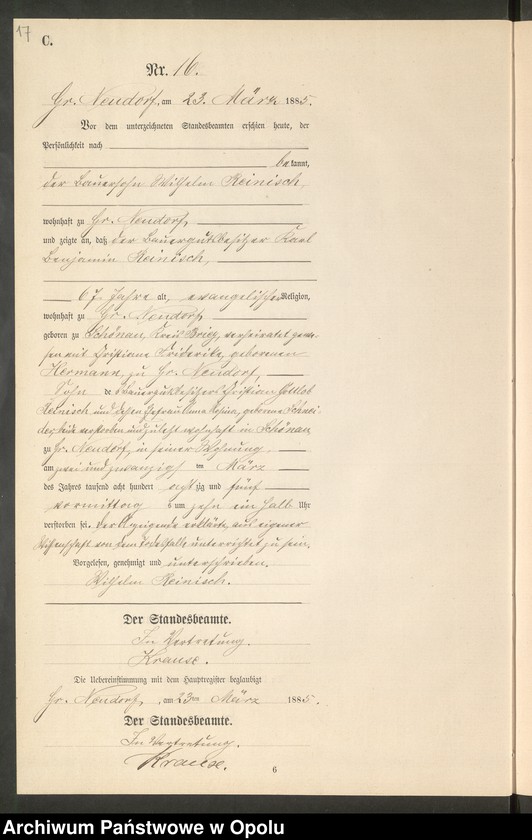 17
C.
Nr. 16.
Gr. Neudorf, am 23. März 1885.
Vor dem unterzeichneten Standesbeamten erschien heute, der
Persönlichkeit nach
bekannt,
der Bauersohn Wilhelm Reinisch,
wohnhaft zu Gr. Neudorf,
und zeigte an, daß der Bauergutsbesitzer Karl
Benjamin Reinisch,
67 Jahre alt, evangelischer Religion,
wohnhaft zu Gr. Neudorf,
geboren zu Schönau, Kreis Brieg, verheiratet gewe-
sen mit Christiane Friderike, geborenen
Hermann, zu Gr. Neudorf,
Sohn des Bauergutsbesitzers Christian Gottlob
Reinisch und dessen Ehefrau Anna Rosina, geborene Schnei-
der, beide verstorben und zuletzt wohnhaft in Schönau
zu Gr. Neudorf, in seiner Wohnung,
am zwei und zwanzigsten März
des Jahres tausend acht hundert achtzig und fünf
vormittags um zehn ein halb Uhr
verstorben sei. Der Anzeigende erklärte, aus eigener
Wissenschaft von dem Todesfalle unterrichtet zu sein.
Vorgelesen, genehmigt und unterschrieben.
Wilhelm Reinisch.
Der Standesbeamte.
In Vertretung.
Krause.
Die Uebereinstimmung mit dem Hauptregister beglaubigt
Gr. Neudorf, am 23ten März 1885.
Der Standesbeamte.
In Vertretung.
Krause.
6
Archiwum Państwowe w Opolu